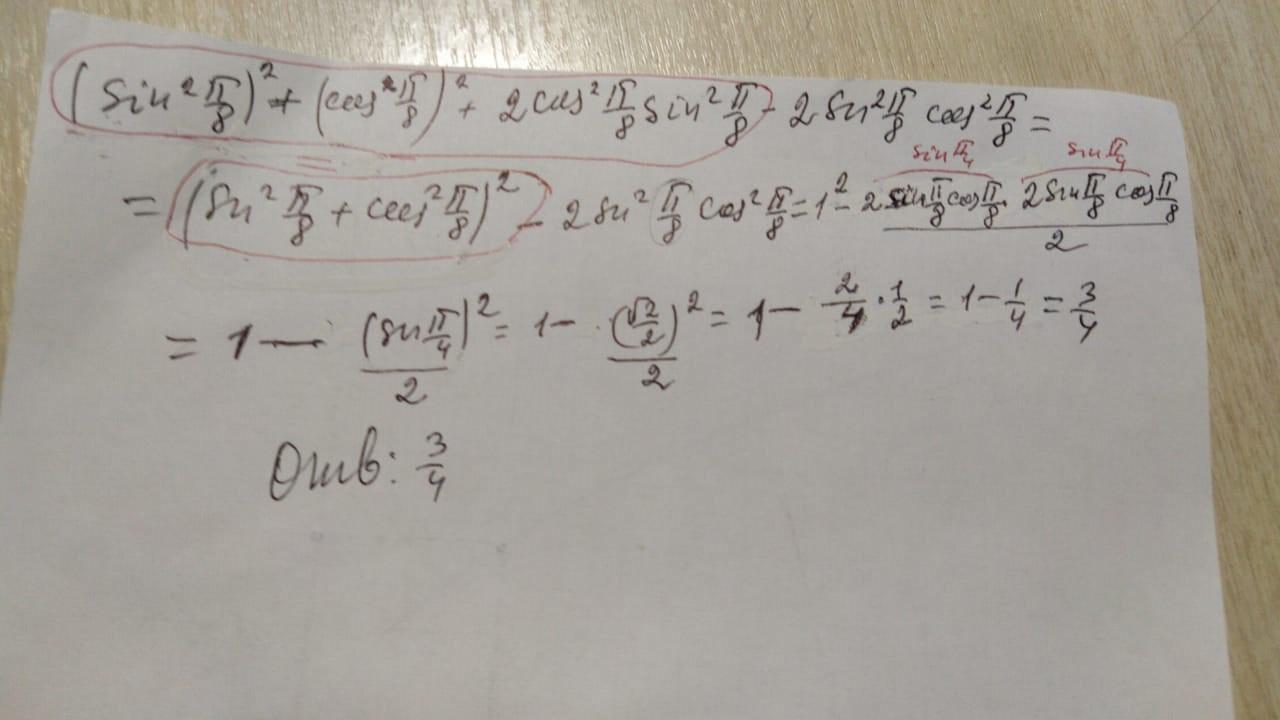 (sin²π/8)² + (cos²π/8)² + 2cos²π/8 sin²π/8 - 2 sin²π/8 cos²π/8 =
sinπ/4 sinπ/4
= (sin²π/8 + cos²π/8)² - 2 sin²π/8 cos²π/8 = 1² - (2 sinπ/8 cosπ/8 · 2 sinπ/8 cosπ/8)/2
= 1 - (sinπ/4)²/2 = 1 - (√2/2)²/2 = 1 - 2/4 · 1/2 = 1 - 1/4 = 3/4
Отв: 3/4